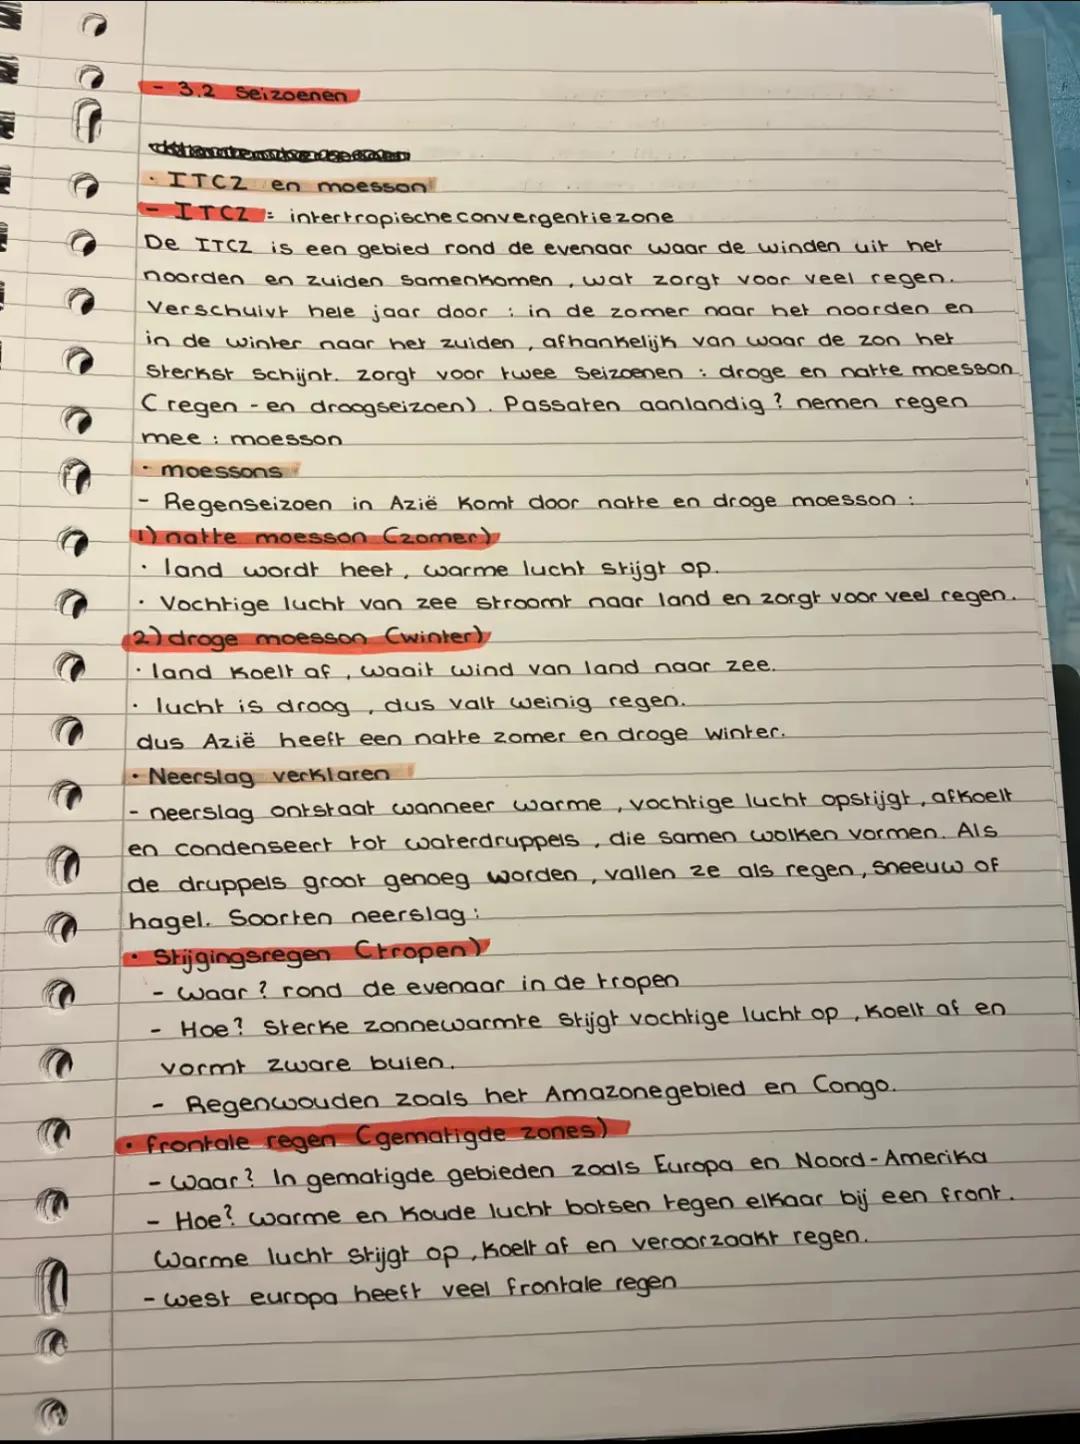 - 3.2 Seizoenen
· ITCZ en moesson
- ITCZ = intertropische convergentiezone
De ITCZ is een gebied rond de evenaar waar de winden uit het
noorden en zuiden samenkomen, wat zorgt voor veel regen.
Verschuivt hele jaar door : in de zomer naar het noorden en
in de winter naar het zuiden, afhankelijk van waar de zon het
sterkst schijnt. zorgt voor twee seizoenen : droge en natte moesson
(regen - en droogseizoen). Passaten aanlandig? nemen regen
mee : moesson
· moessons
- Regenseizoen in Azië komt door natte en droge moesson :
1) natte moesson (zomer)
· land wordt heet, warme lucht stijgt op.
· Vochtige lucht van zee stroomt naar land en zorgt voor veel regen.
2) droge moesson (winter)
· land koelt af, waait wind van land naar zee.
· lucht is droog, dus valt weinig regen.
dus Azië heeft een natte zomer en droge winter.
· Neerslag verklaren
- neerslag ontstaat wanneer warme, vochtige lucht opstijgt, afkoelt
en condenseert tot waterdruppels, die samen wolken vormen. Als
de druppels groot genoeg worden, vallen ze als regen, sneeuw of
hagel. Soorten neerslag :
· Stijgingsregen (tropen)
- Waar? rond de evenaar in de tropen
- Hoe? Sterke zonnewarmte stijgt vochtige lucht op, koelt af en
vormt zware buien.
- Regenwouden zoals het Amazonegebied en Congo.
· frontale regen (gematigde zones)
- Waar? In gematigde gebieden zoals Europa en Noord-Amerika
- Hoe? Warme en koude lucht botsen tegen elkaar bij een front.
Warme lucht stijgt op, koelt af en veroorzaakt regen.
- west europa heeft veel frontale regen